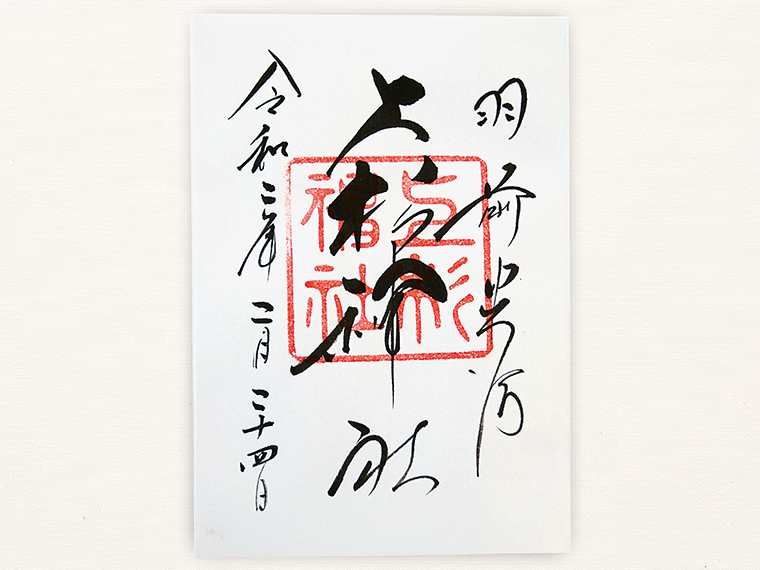 羽前米沢
上杉神社
令和二年二月二十四日
上杉
神社